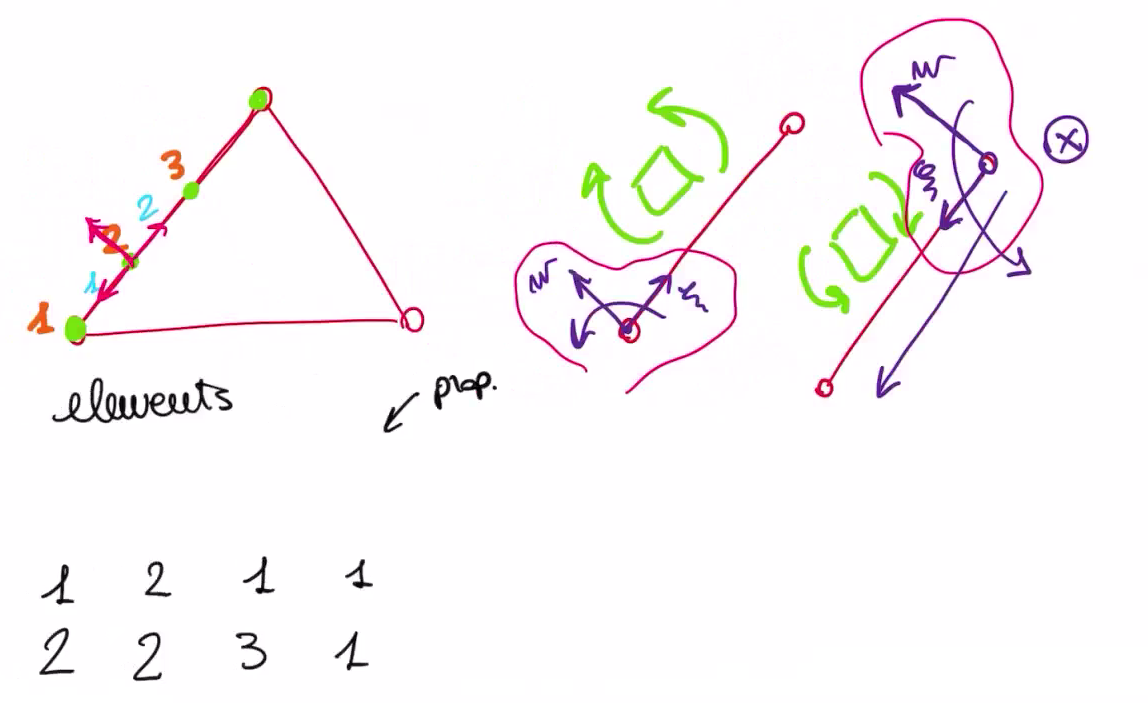 3
2
2
1
1
elements
prop.
w
ξ
w
ξ
x
1 2 1 1
2 2 3 1